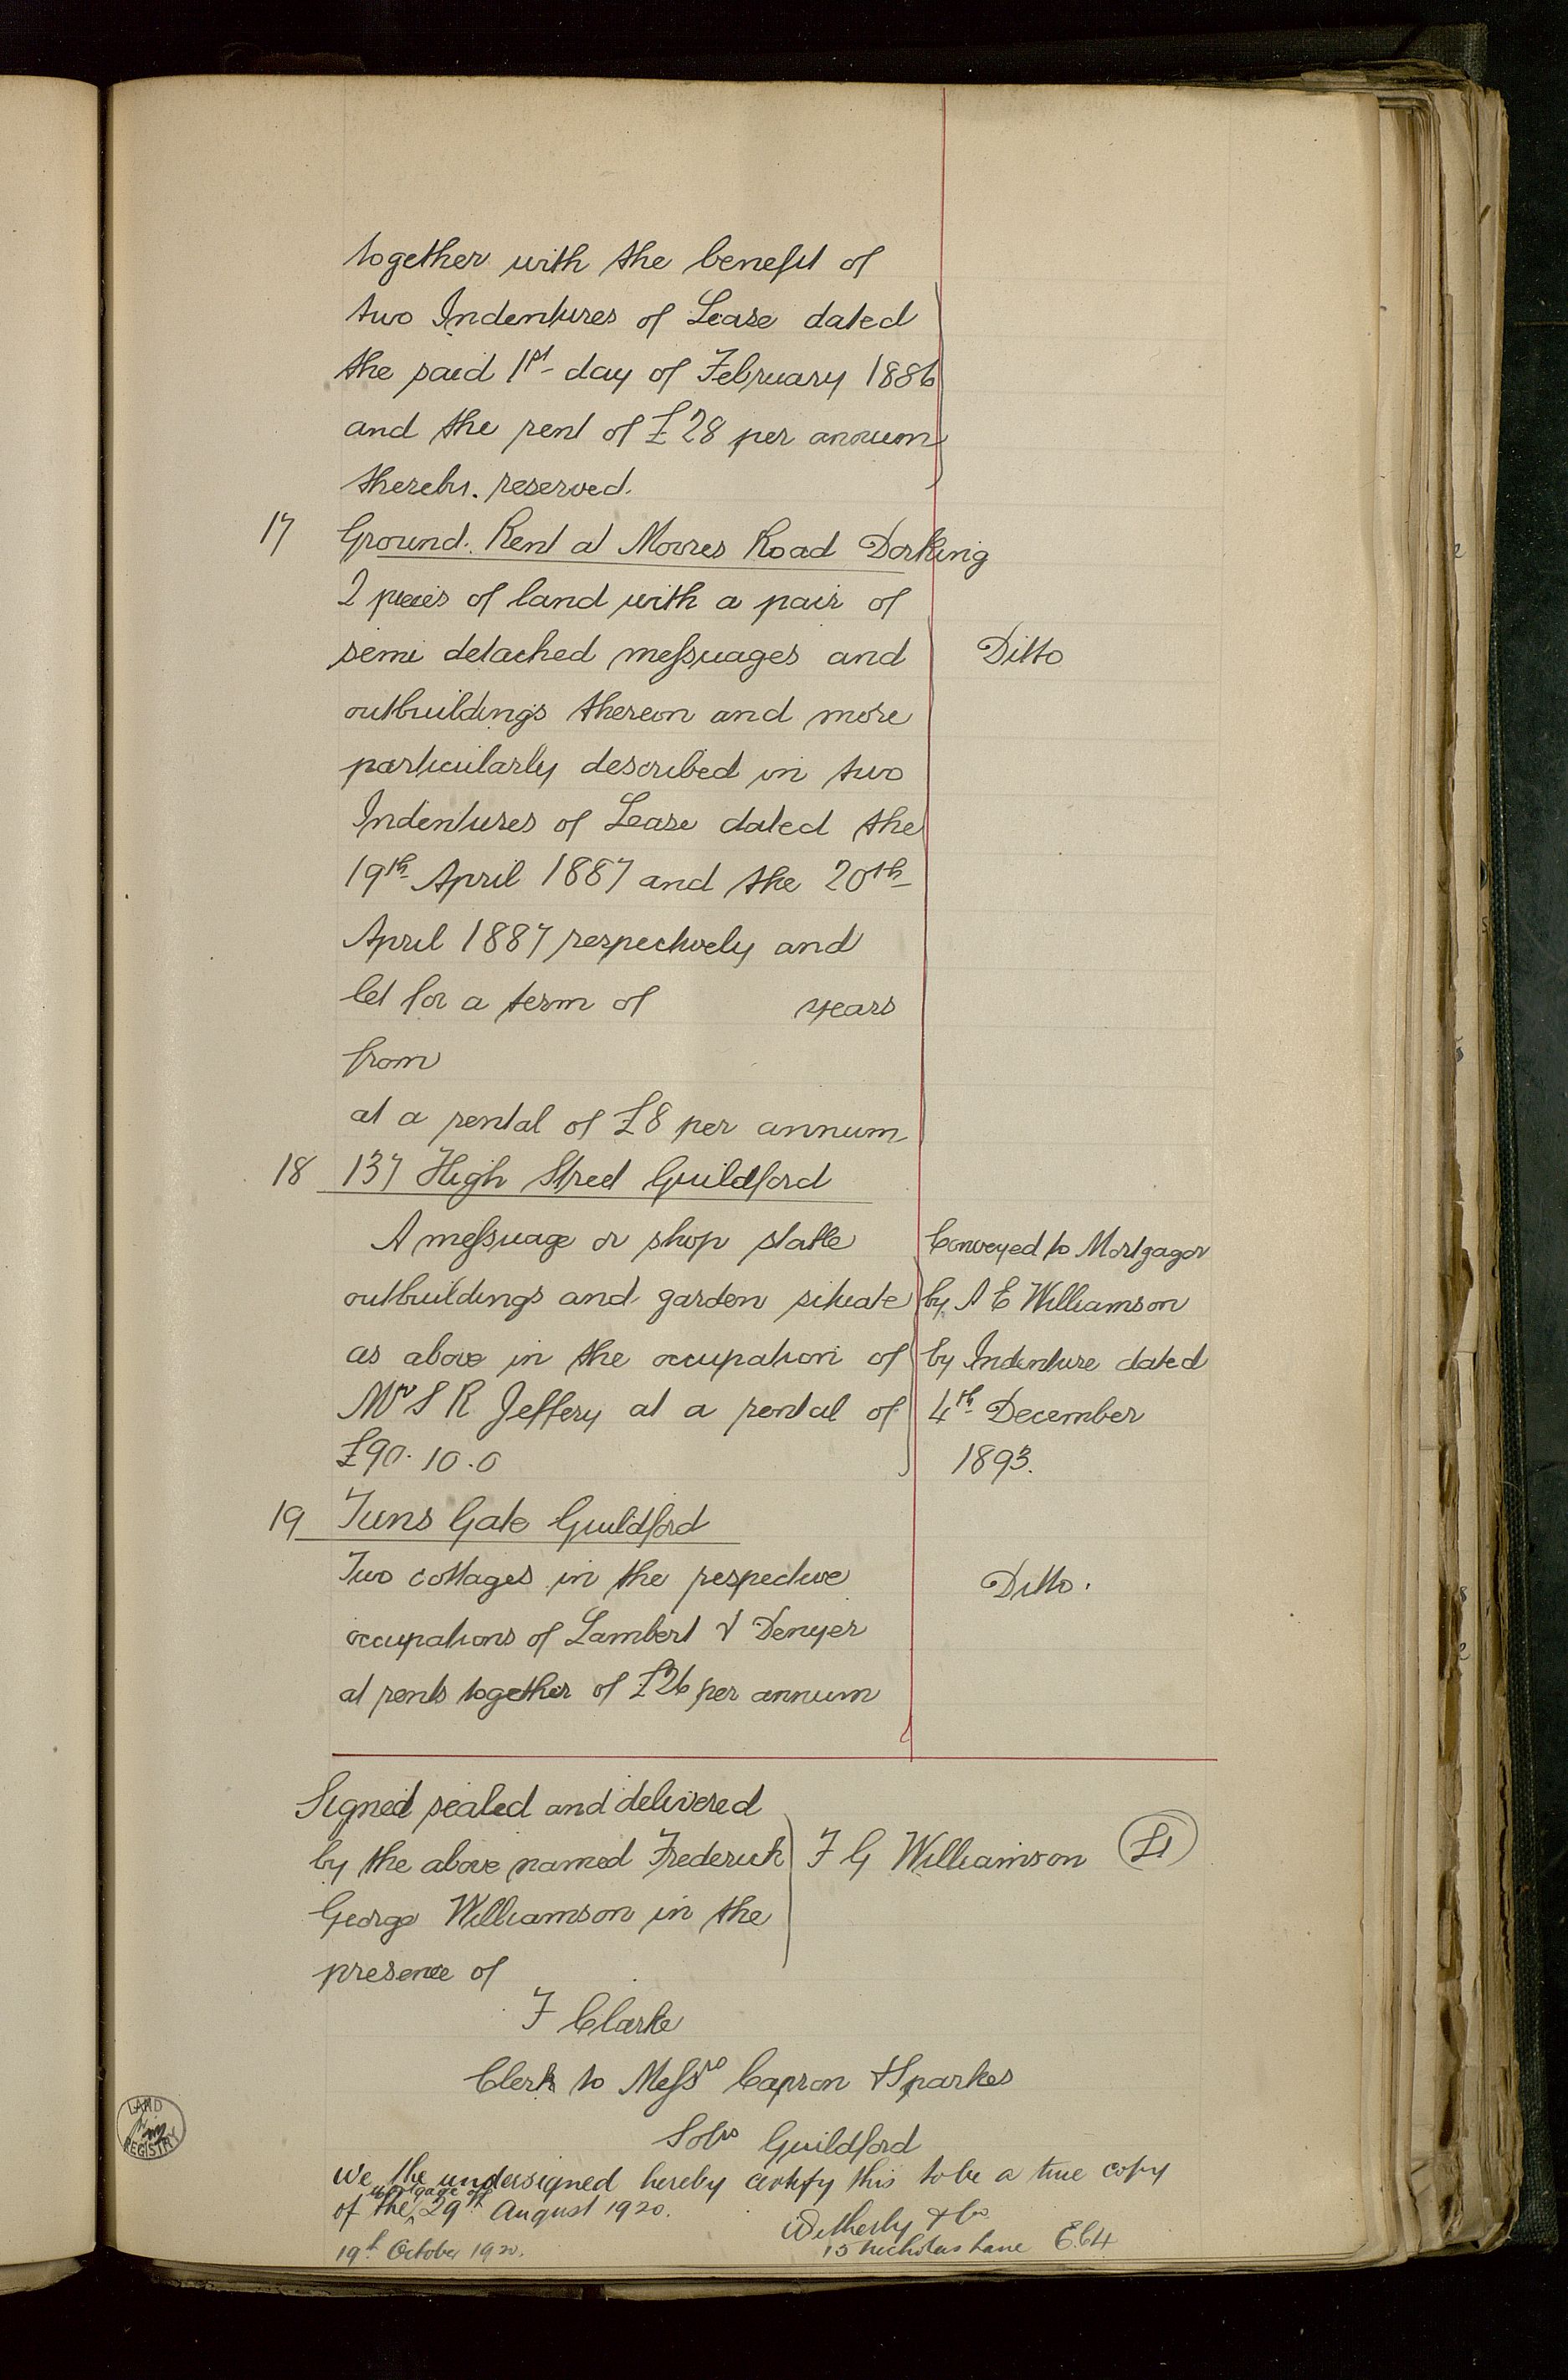 together with the benefit of
two Indentures of Lease dated
the said 1st day of February 1886
and the rent of £28 per annum
thereby reserved.
17 Ground Rent at Moores Road Dorking
2 pieces of land with a pair of
semi detached messuages and Ditto
outbuildings thereon and more
particularly described in two
Indentures of Lease dated the
19th April 1887 and the 20th
April 1887 respectively and
let for a term of years
from
at a rental of £8 per annum
18 137 High Street Guildford
A messuage or shop stable Conveyed to Mortgagor
outbuildings and garden situate by A E Williamson
as above in the occupation of by Indenture dated
Mr S R Jeffery at a rental of 4th December
£90.10.0 1893.
19 Tuns Gate Guildford
Two cottages in the respective Ditto.
occupations of Lambert & Denyer
at rents together of £26 per annum
Signed sealed and delivered
by the above named Frederick F G Williamson LS
George Williamson in the
presence of
F Clarke
Clerk to Messrs Capron & Sparkes
Solrs Guildford
We the undersigned hereby certify this to be a true copy
of the mortgage of 29th August 1920.
Witherby & Co.
15 Nicholas Lane E.C.4
19th October 1920.
LAND
REGISTRY